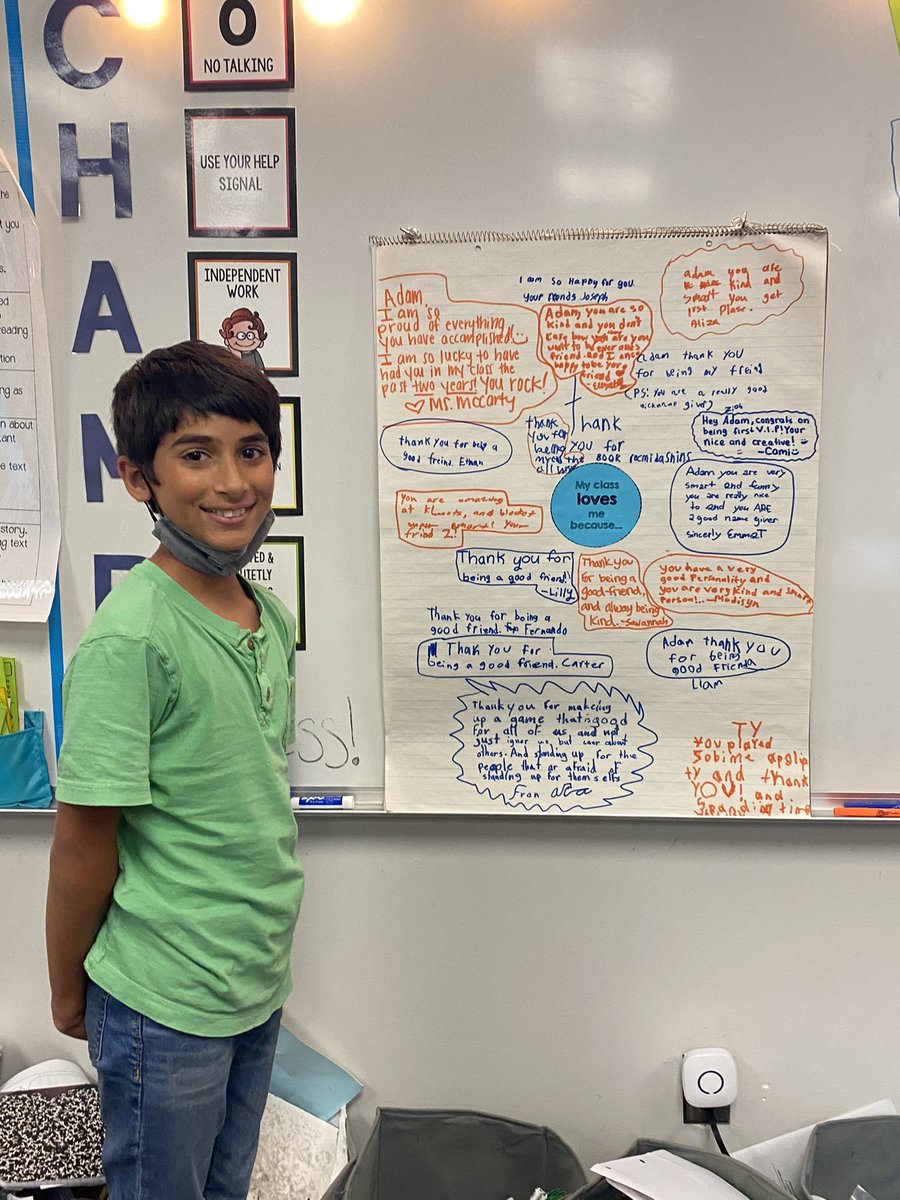 C
H
A
M
O
NO TALKING
USE YOUR HELP
SIGNAL
INDEPENDENT
WORK
Adam,
I am so
proud of everything
you have accomplished!
I am so lucky to have
had you in my class the
past two years! You rock!
Ms. Mccarty
I am so Happy for you
your friends Joseph
Adam, you are so
kind and you don't
care how
want to be
friend. and I am so
happy to be your
friend
adam you are
kind and
Smart you get
1rst plasr.
Aliza
adam thank you
for being my freind
(PS: you are a really good
nickname giver)
thank you for beig a
good freind. Ethan
thank
you for
being
Thank
you for
the BOOK recmidashins
Hey Adam, congrats on
being first V.I.P! Your
nice and creative!
-Cami
My class
loves
me
because...
Adam you are very
Smart and funny
you are really nice
to and you ARE
a good name giver
Sincerly Emma T
You are amazing
at
and
Thank you for
being a good friend!
-Lilly
Thank you
for being a
good friend,
and alway being
kind. -Savannah
you have a very
good Personality and
you are very kind and smart
Person!. -Madisyn
Thank you for being a
good friend. Fernando
Thak you for
being a good friend. Carter
Adam thank you
for being
good friend
Liam
Thank you for makeing
up a game that is good
for all of us, and not
just ignor us, but caer about
others. And standing up for the
people that ar afraid of
standing up for them selfs
fron
TY
You played
and thank
YOU! and
ss!
the
you
reading
as
about
text
story,
text